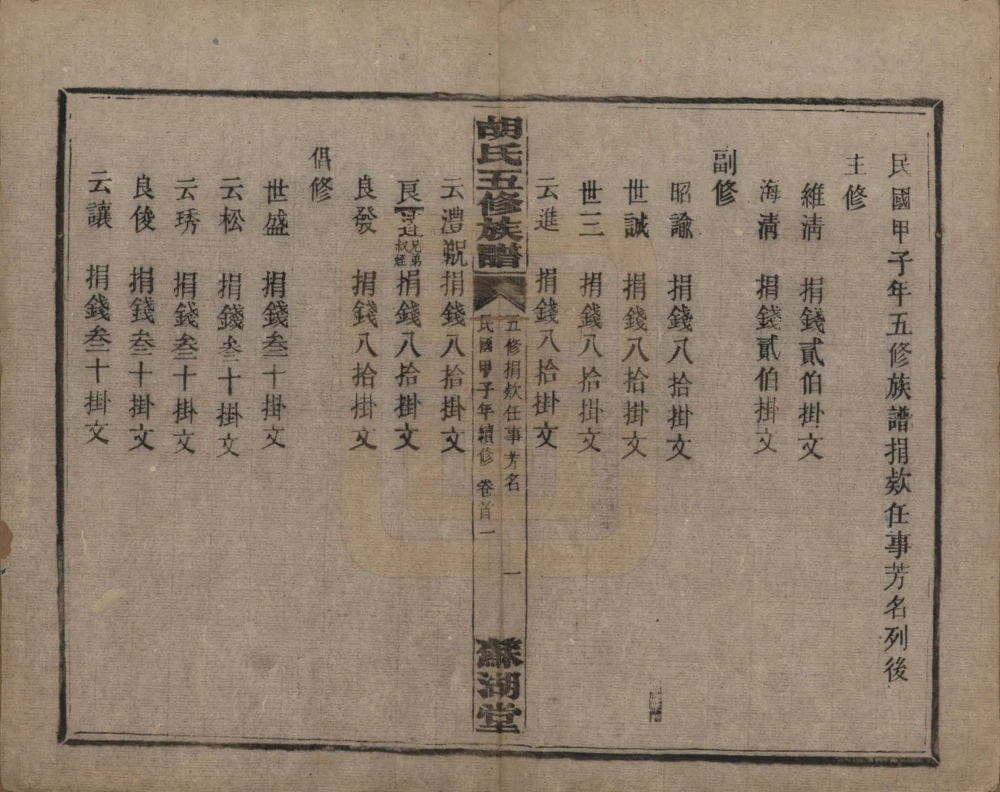 民國甲子年五修族譜捐欵任事芳名列後
主修
維淸 捐錢貳伯掛文
海淸 捐錢貳伯掛文
副修
昭諭 捐錢八拾掛文
世誠 捐錢八拾掛文
世三 捐錢八拾掛文
云進 捐錢八拾掛文
胡氏五修族譜
五修捐欵任事芳名 一
民國甲子年續修 卷首一
蘇湖堂
云澧 捐錢八拾掛文
良 兄弟叔姪 捐錢八拾掛文
良發 捐錢八拾掛文
倡修
世盛 捐錢叁十掛文
云松 捐錢叁十掛文
云琇 捐錢叁十掛文
良俊 捐錢叁十掛文
云讓 捐錢叁十掛文